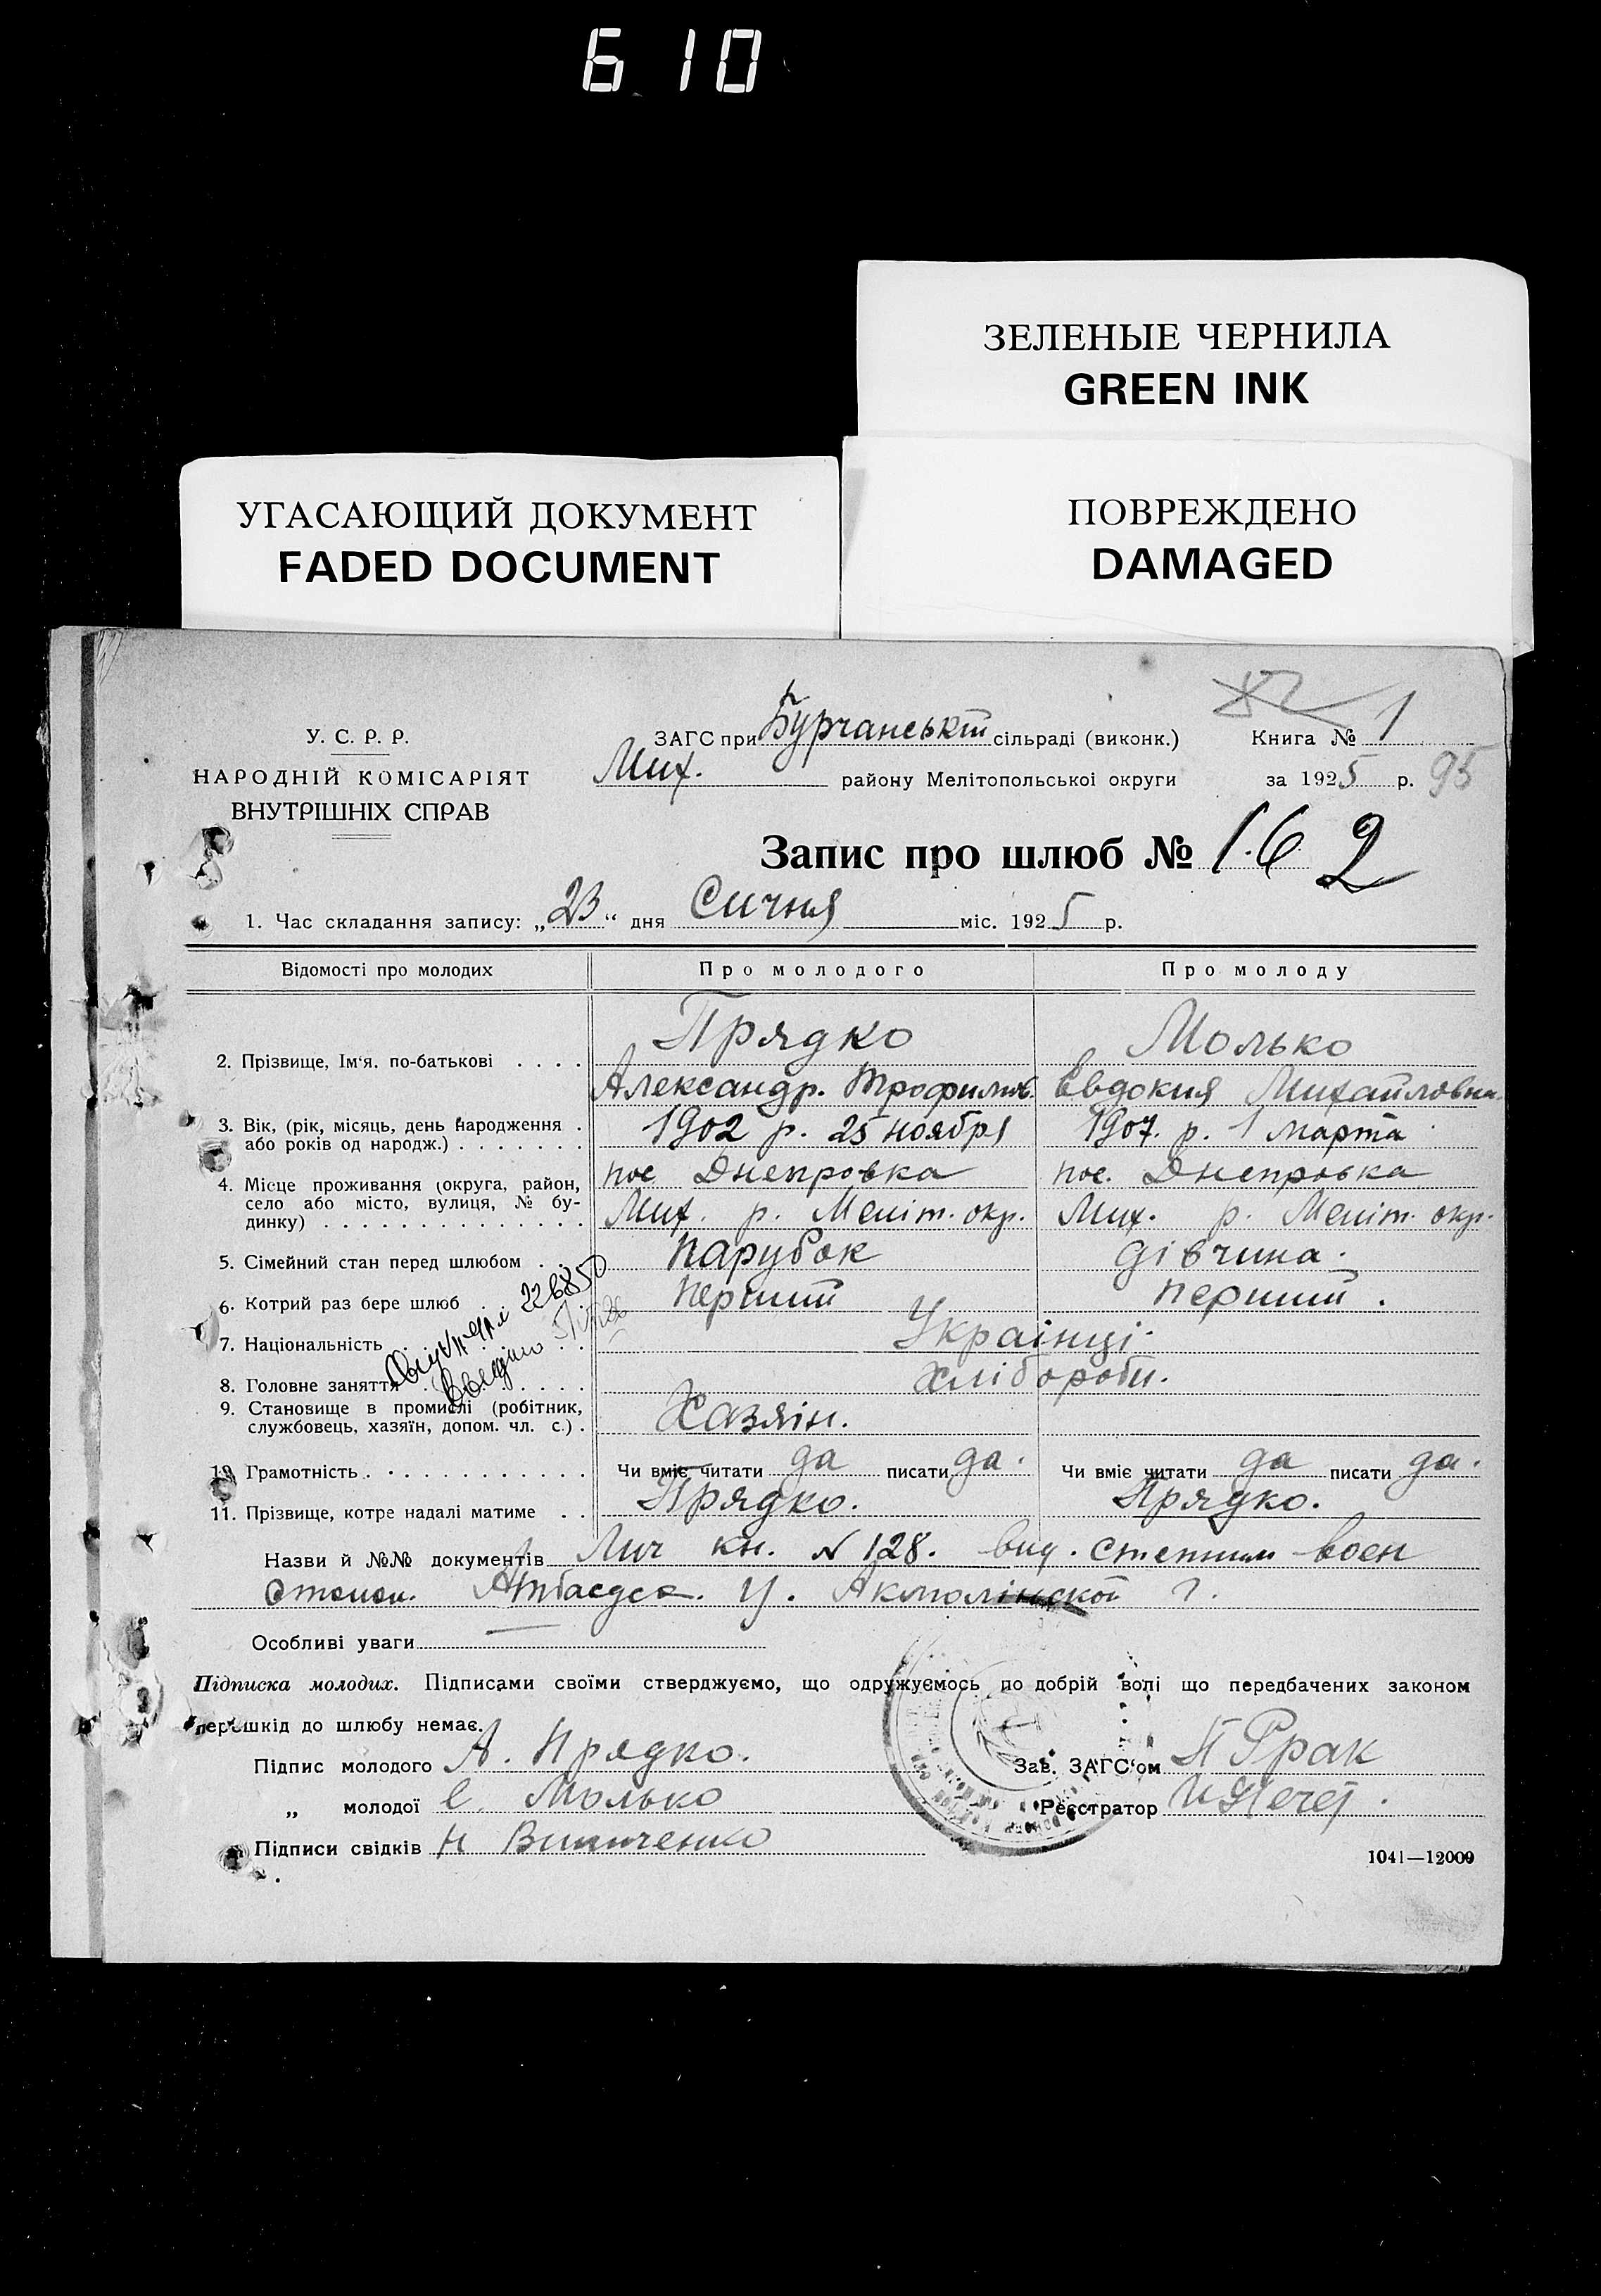 6 10
ЗЕЛЕНЫЕ ЧЕРНИЛА
GREEN INK
УГАСАЮЩИЙ ДОКУМЕНТ
FADED DOCUMENT
ПОВРЕЖДЕНО
DAMAGED
У. С. Р. Р.
НАРОДНІЙ КОМІСАРІЯТ
ВНУТРІШНІХ СПРАВ
ЗАГС при Бурчанській сільраді (виконк.) Книга № 1
Мих. району Мелітопольської округи за 1925 р. 95
Запис про шлюб № 1.6 2
1. Час складання запису: „23“ дня Сичня міс. 1925 р.
Відомості про молодих Про молодого Про молоду
Прядко Молько
2. Прізвище, Ім'я. по-батькові
Александр. Трофимов. Евдокия Михайловна
3. Вік, (рік, місяць, день народження
або років од народж.) 1902 р. 25 ноября 1907. р. 1 марта
4. Місце проживання (округа, район,
село або місто, вулиця, № бу-
динку)
пос Днепровка пос. Днепровка
Мих. р. Меліт. окр. Мих. р. Меліт. окр.
5. Сімейний стан перед шлюбом Парубок дівчина.
6. Котрий раз бере шлюб Перший перший.
226850
7. Національність Украінці.
8. Головне заняття Хлібороби.
9. Становище в промислі (робітник,
службовець, хазяїн, допом. чл. с.) Хазяін.
10. Грамотність Чи вміє читати да писати да. Чи вміє читати да писати да.
11. Прізвище, котре надалі матиме Прядко. Прядко.
Назви й №№ документів Лич кн. № 128. вид. Степним воен
У. Акмолінской г.
Особливі уваги
Підписка молодих. Підписами своїми стверджуємо, що одружуємось по добрій волі що передбачених законом
перешкід до шлюбу немає.
Підпис молодого А. Прядко. Зав. ЗАГС'ом
„ молодої Е. Молько Реєстратор
Підписи свідків Н Винниченко
1041—12000